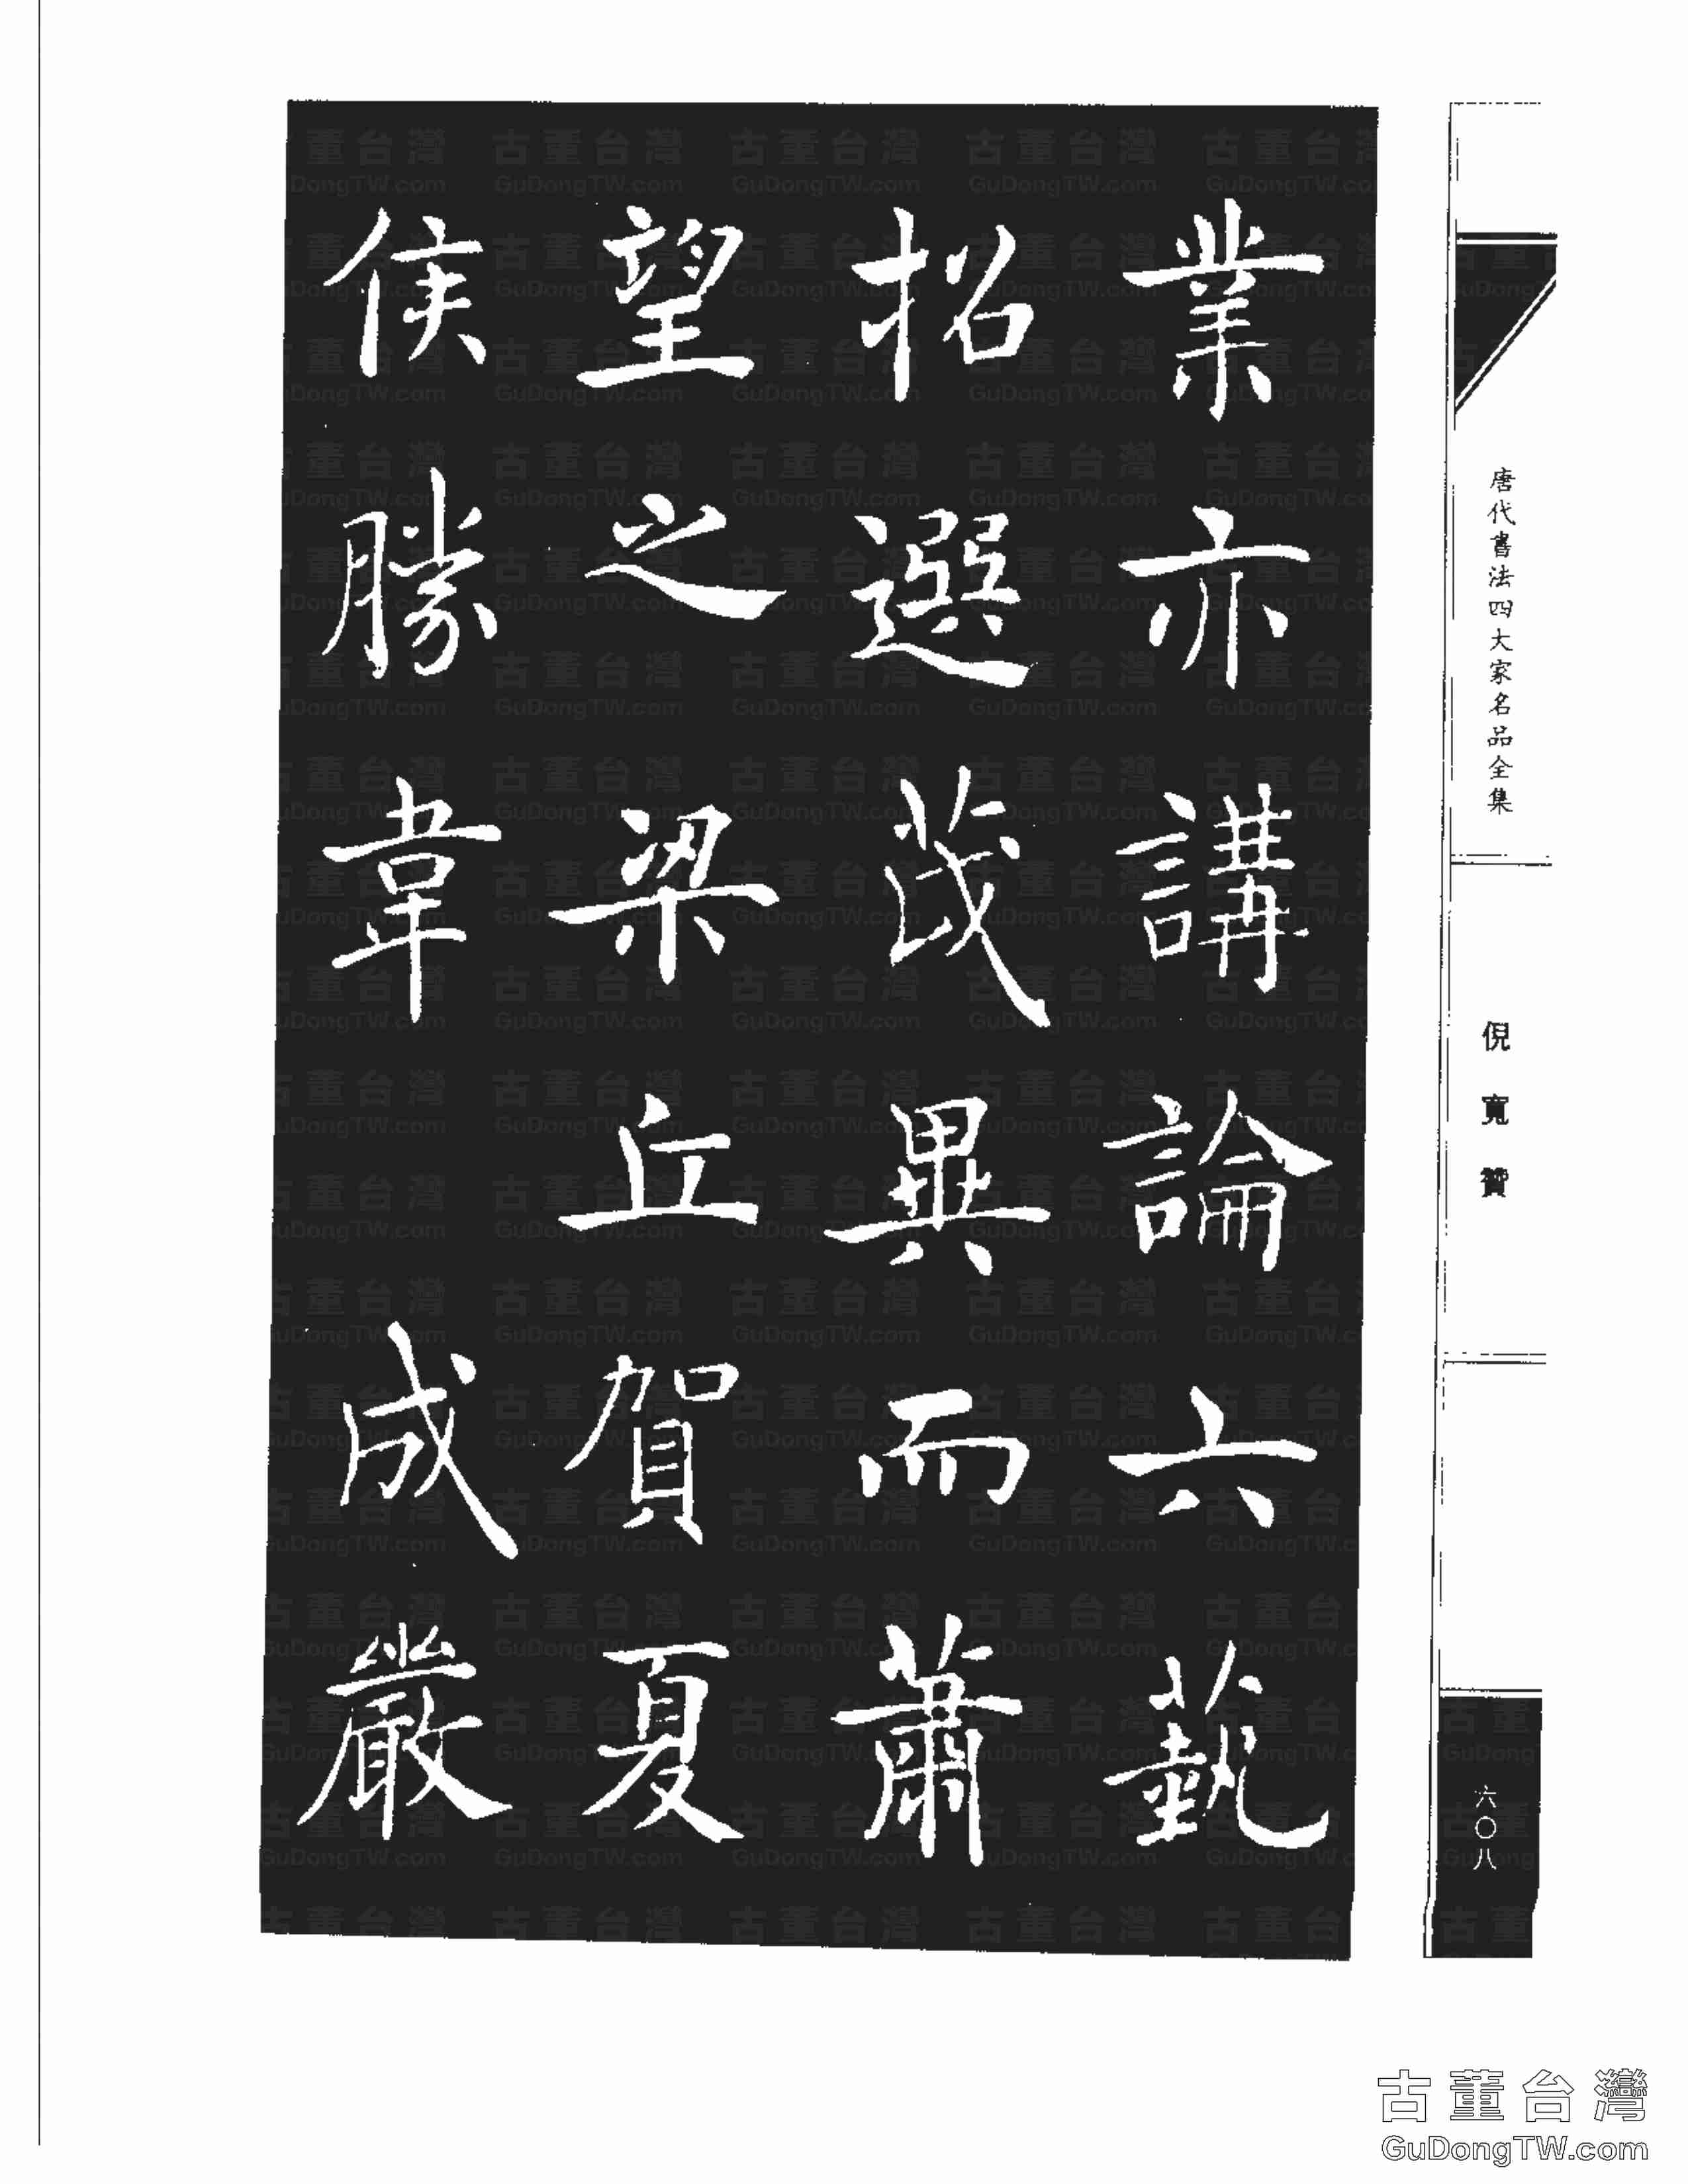 業亦講論六藝
招選茂異而蕭
望之梁丘賀夏
侯勝韋成嚴
唐代書法四大家名品全集
倪寬贊
六〇八
古董台灣
GuDongTW.com